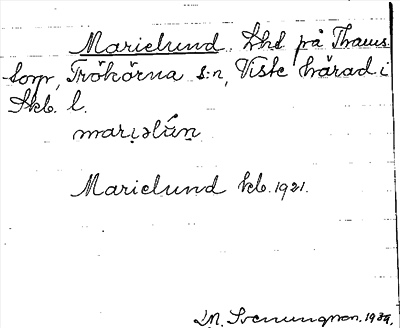 Marielund. Lhs på Thams-
torp, Trökörna s:n, Viste härad i
Skb. l.
mari̯əlún
Marielund kb. 1921.
M. Svenungson. 1934.